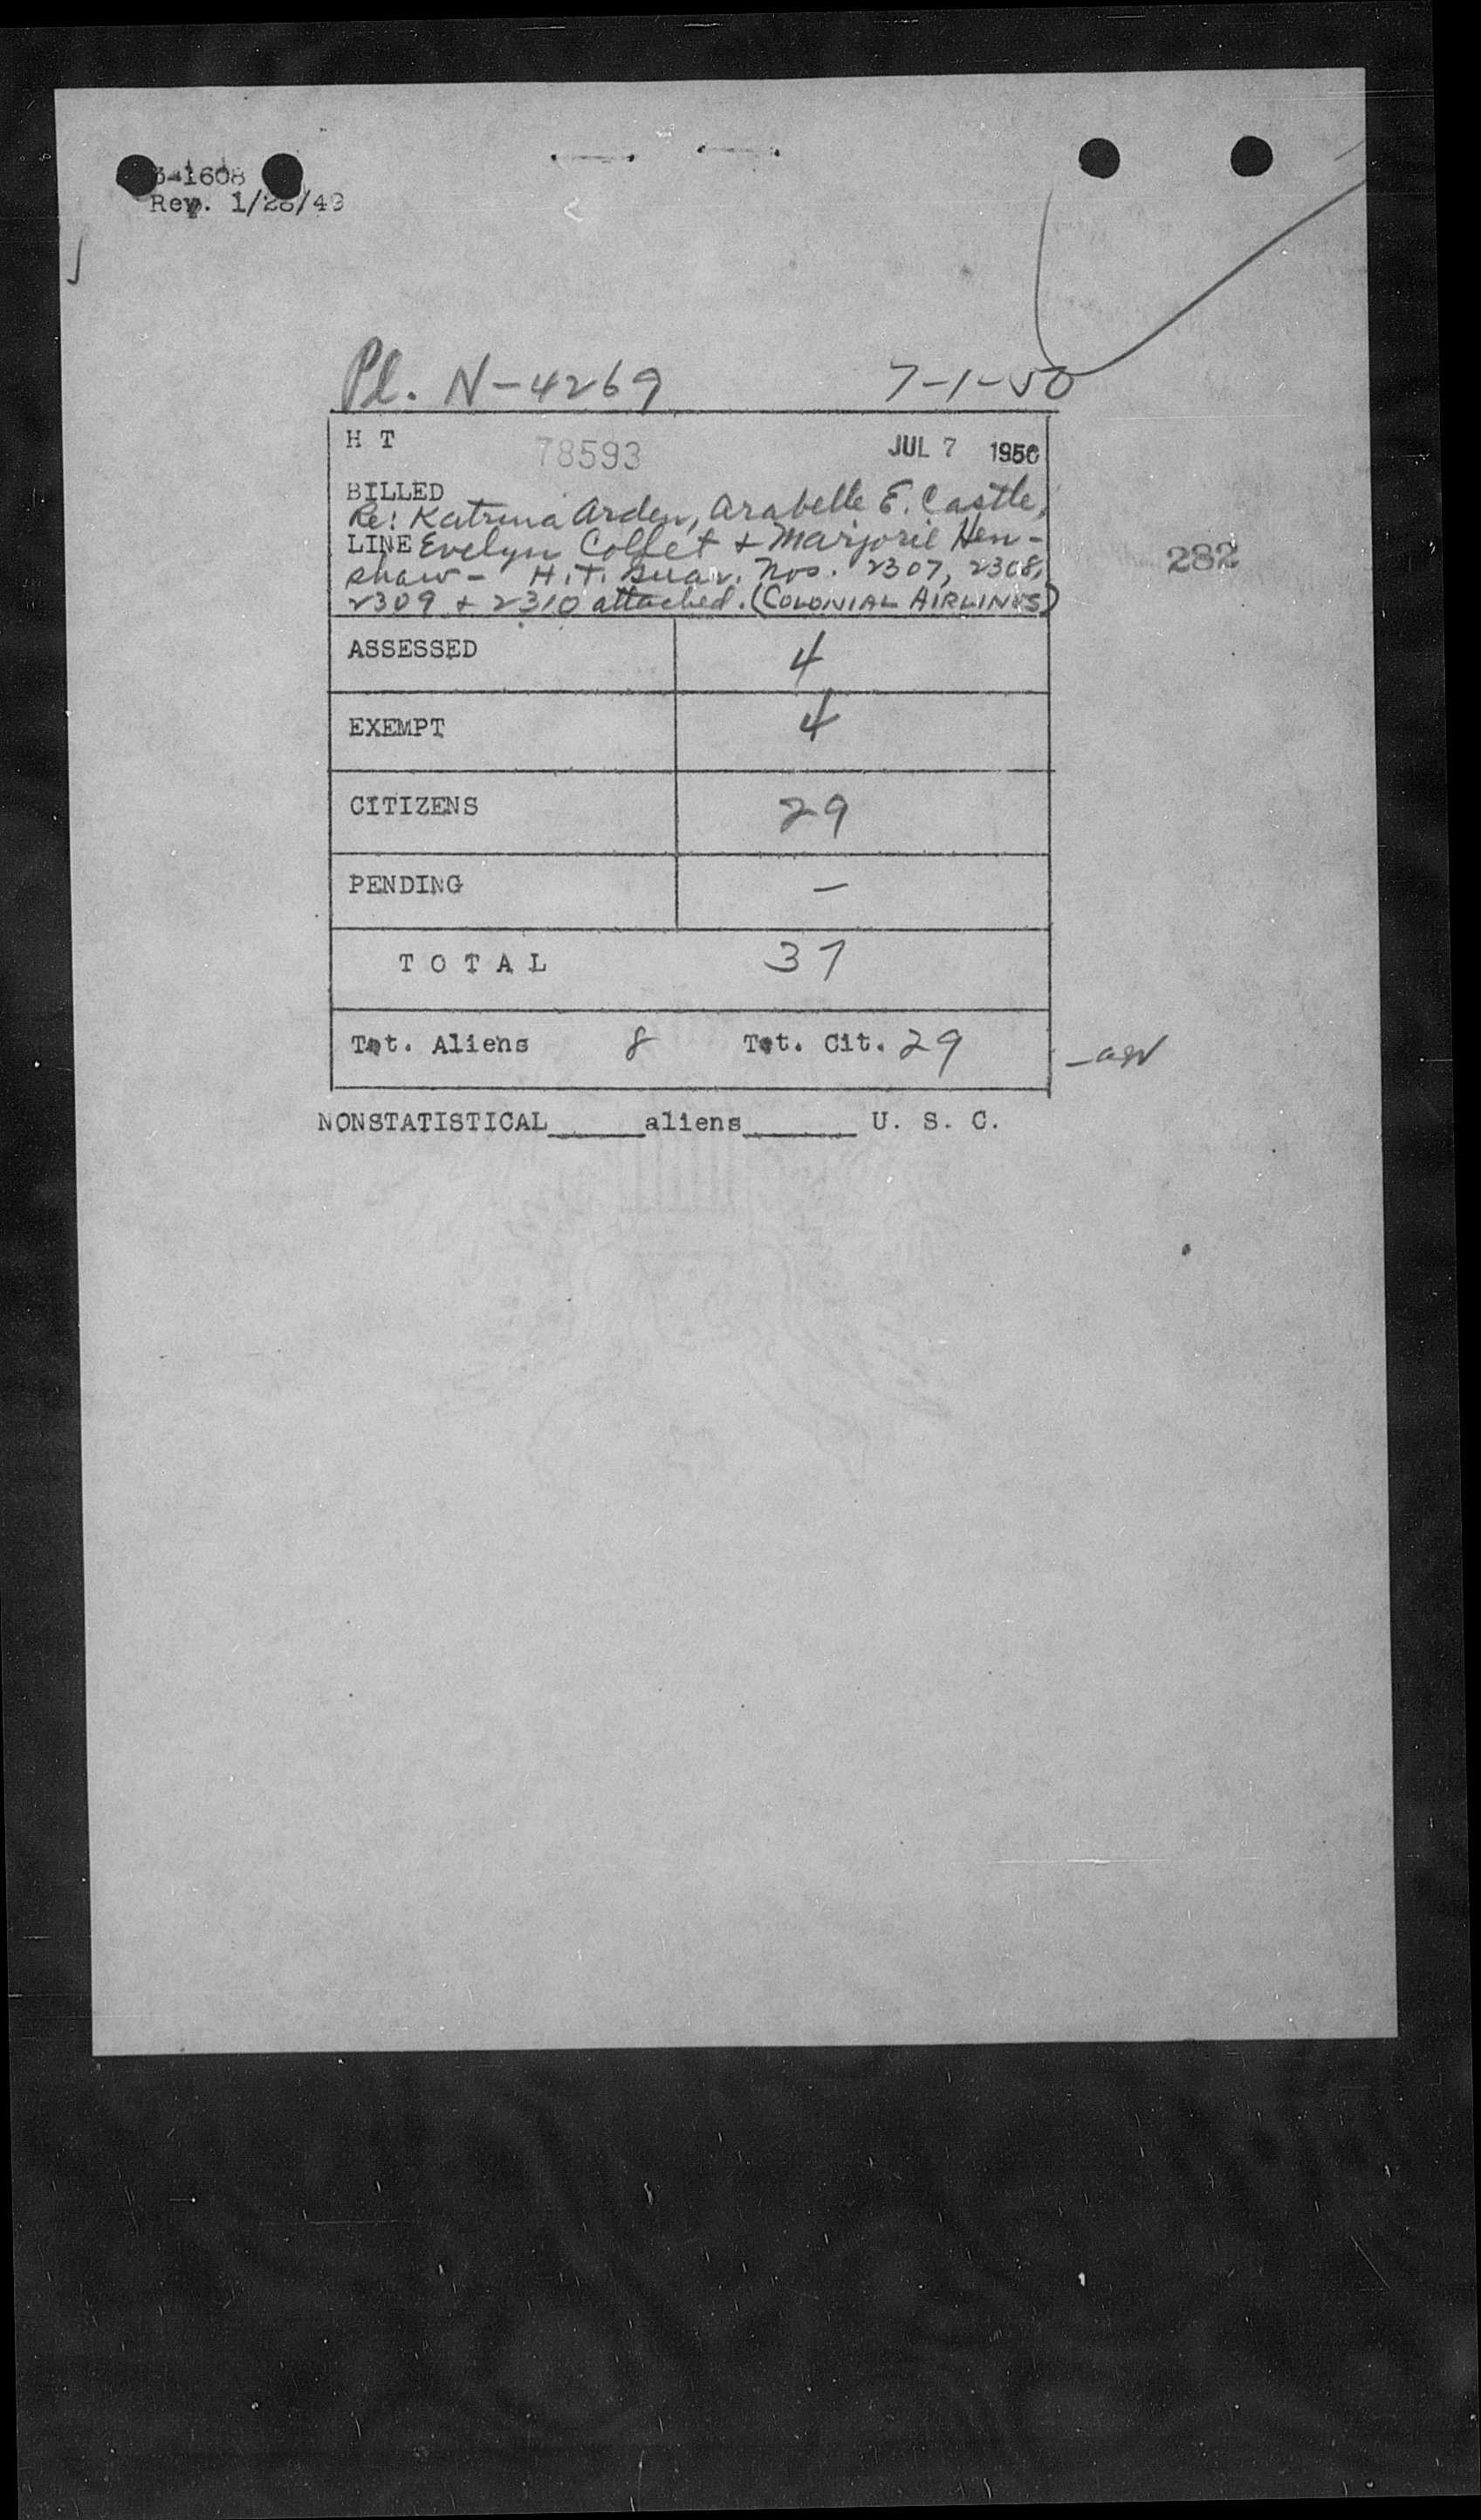 3-1608
Rev. 1/28/49
Pl. N-4269 7-1-50
H T 78593 JUL 7 1950
BILLED
Re: Katrina Arden, Arabelle E. Castle,
LINE Evelyn Collet + Marjorie Hen-
shaw - H.T. Guar. Nos. 2307, 2308,
2309 + 2310 attached. (COLONIAL AIRLINES)
282
ASSESSED 4
EXEMPT 4
CITIZENS 29
PENDING —
TOTAL 37
Tot. Aliens 8 Tot. Cit. 29
NONSTATISTICAL_____aliens______ U. S. C.